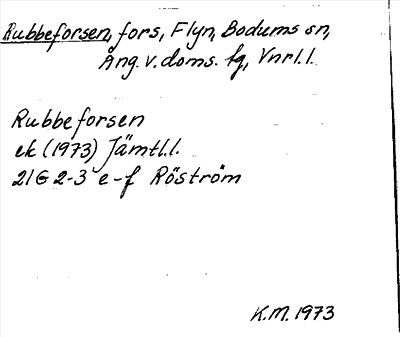 Rubbeforsen, fors, Flyn, Bodums sn,
Ång. v. doms. fg, Vnrl.l.
Rubbeforsen
ek (1973) Jämtl.l.
21G 2-3 e-f Röström
K.M. 1973